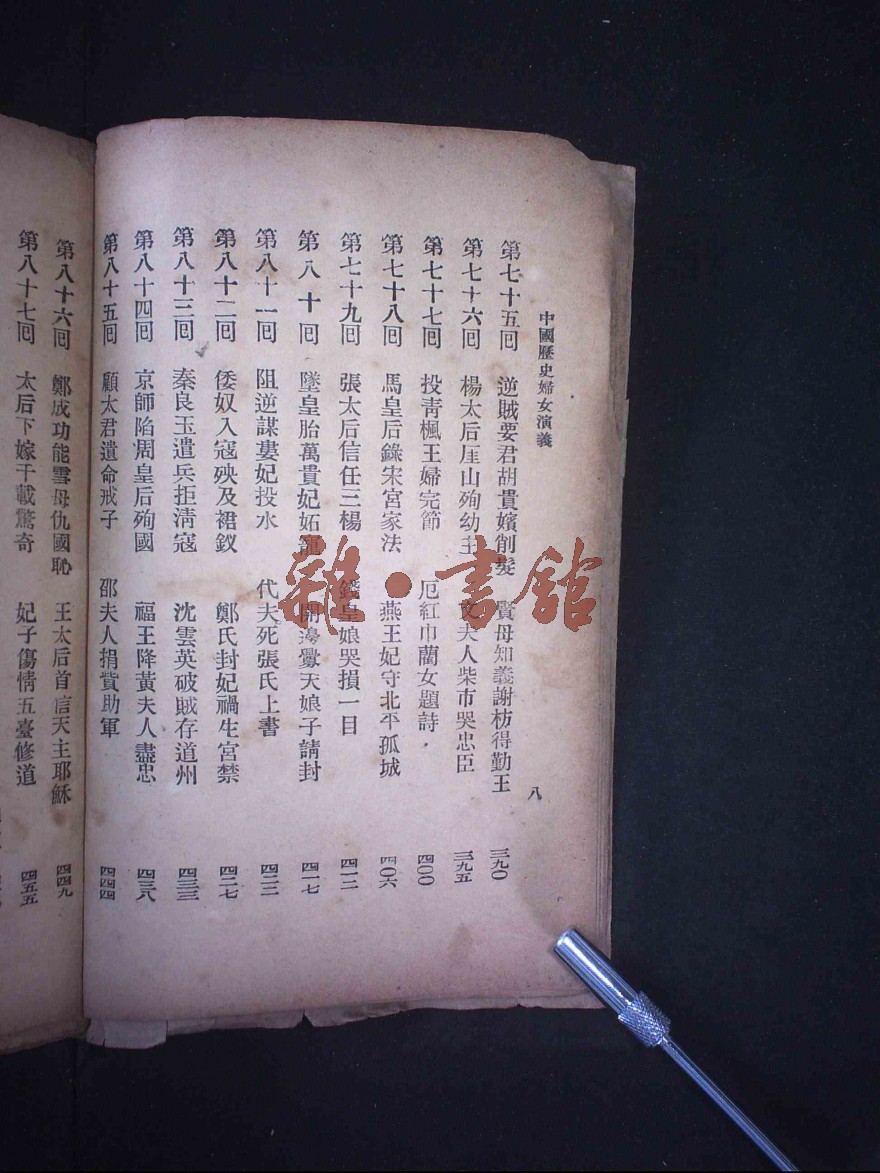 中國歷史婦女演義
八
第七十五回 逆賊要君胡貴嬪削髮 賢母知義謝枋得勤王 三九〇
第七十六回 楊太后厓山殉幼主 文夫人柴市哭忠臣 三九五
第七十七回 投靑楓王婦完節 厄紅巾藺女題詩 四〇〇
第七十八回 馬皇后錄宋宮家法 燕王妃守北平孤城 四〇六
第七十九回 張太后信任三楊 錢皇娘哭損一目 四一二
第八十回 墜皇胎萬貴妃妬寵 開邊釁天娘子請封 四一七
第八十一回 阻逆謀婁妃投水 代夫死張氏上書 四二二
第八十二回 倭奴入寇殃及裙釵 鄭氏封妃禍生宮禁 四二七
第八十三回 秦良玉遣兵拒淸寇 沈雲英破賊存道州 四三三
第八十四回 京師陷周皇后殉國 福王降黃夫人盡忠 四三八
第八十五回 顧太君遺命戒子 邵夫人捐貲助軍 四四四
第八十六回 鄭成功能雪母仇國恥 王太后首信天主耶穌 四四九
第八十七回 太后下嫁千載驚奇 妃子傷情五臺修道 四五五
雜·書館